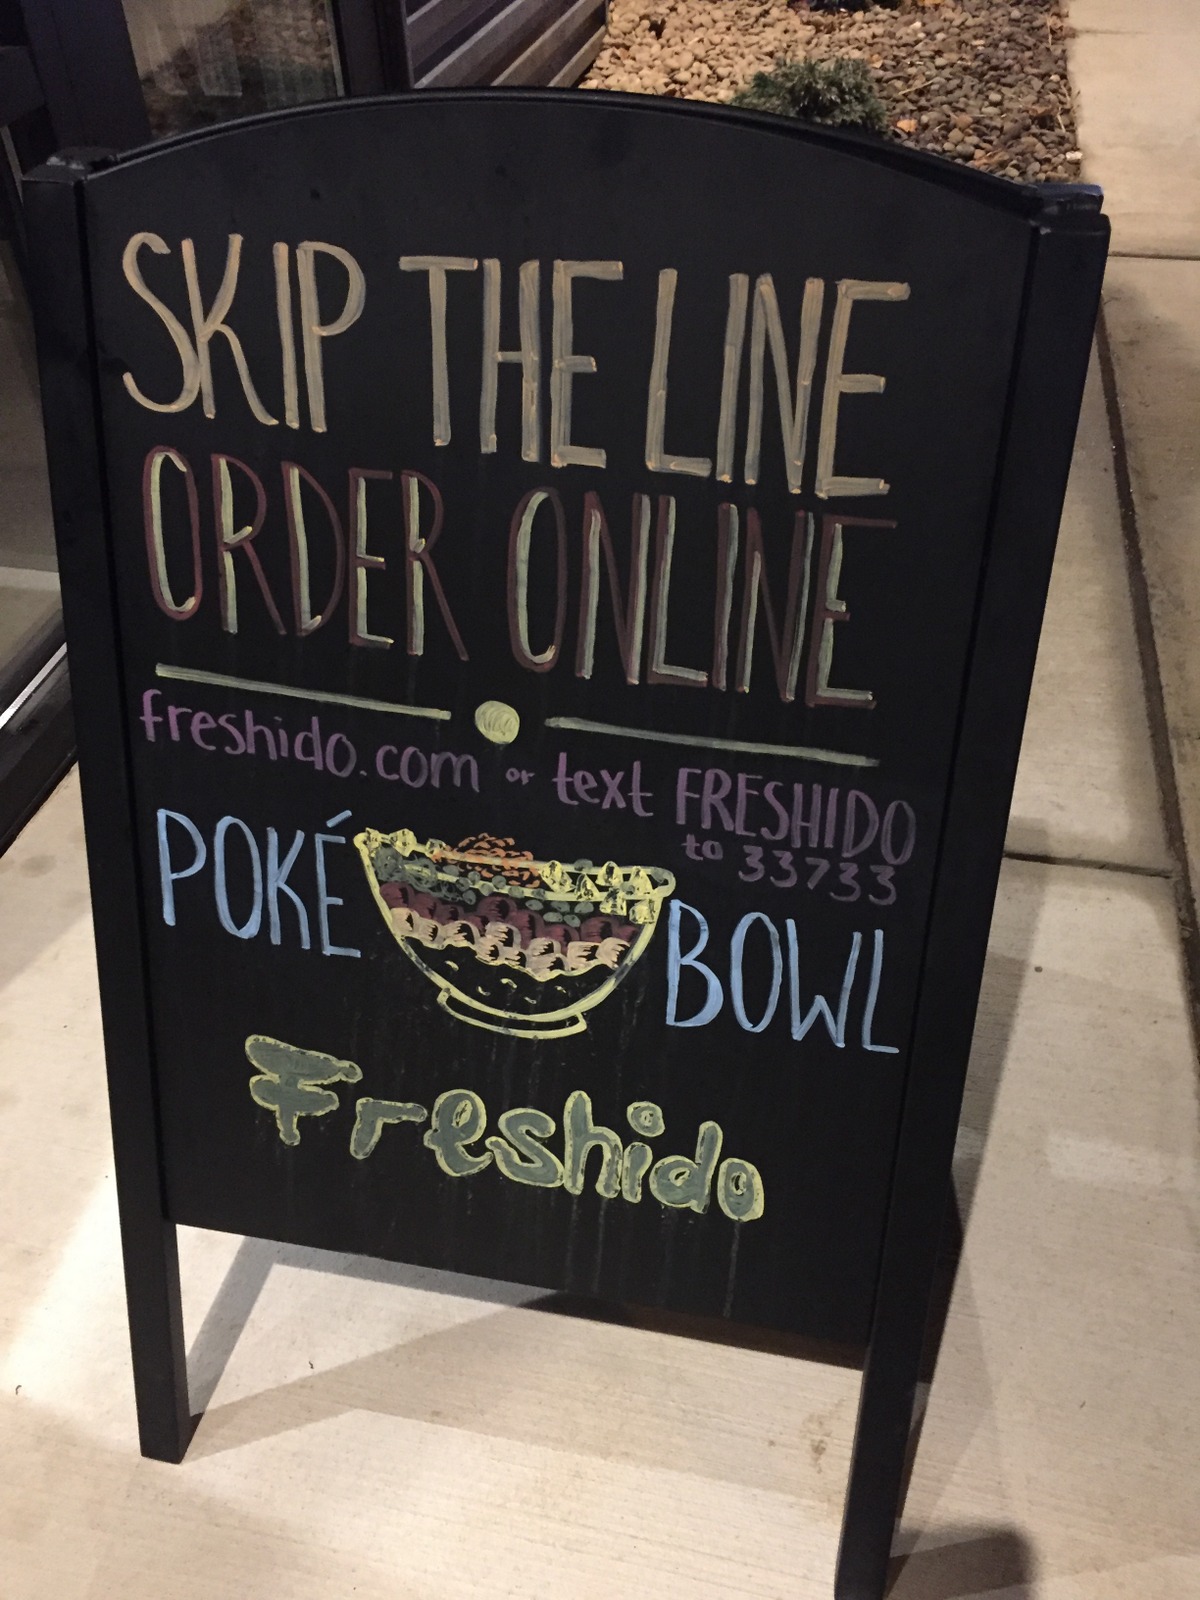 SKIP THE LINE
ORDER ONLINE
freshido.com or text FRESHIDO
to 33733
POKÉ BOWL
Freshido